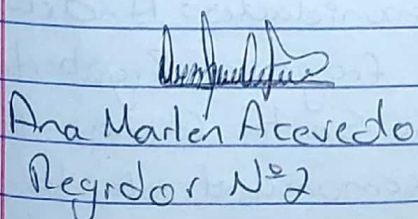 Ana Marlen Acevedo
Regidor Nº2